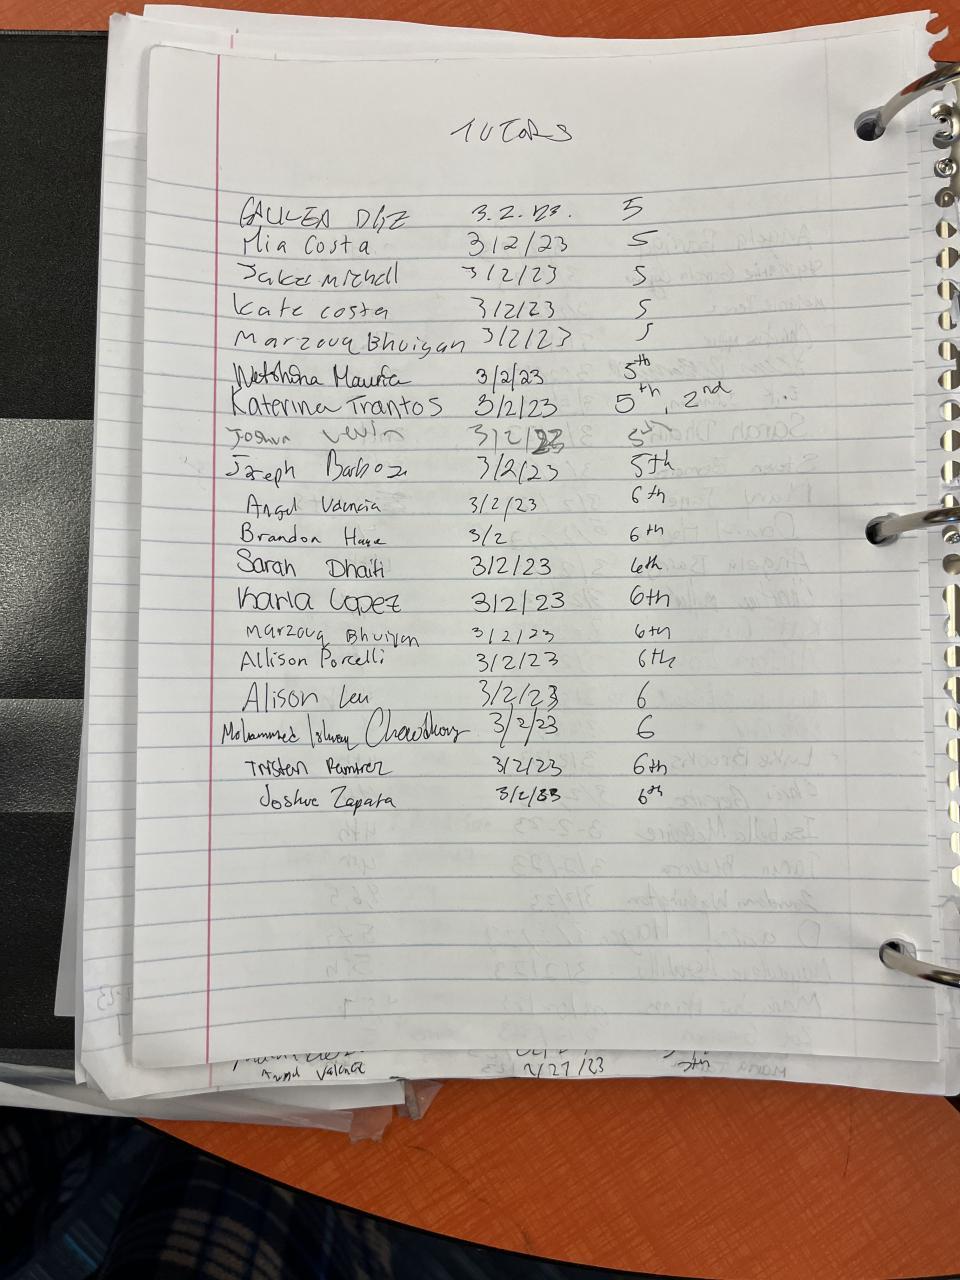 TUTORS
GALILEA DIAZ 3.2.23. 5
Mia Costa 3/2/23 5
Jake Michell 3/2/23 5
Kate costa 3/2/23 5
Marzouq Bhuiyan 3/2/23 5
3/2/23 5th
Katerina Trantos 3/2/23 5th, 2nd
Joshua 3/2/23 5th
Joseph Barboza 3/2/23 5th
Angel Valencia 3/2/23 6th
Brandon 3/2 6th
Sarah Dhaiti 3/2/23 6th
Karla Lopez 3/2/23 6th
Marzouq Bhuiyan 3/2/23 6th
Allison Porcelli 3/2/23 6th
Alison Leu 3/2/23 6
Mohammed Chowdhury 3/2/23 6
Tristan Ramirez 3/2/23 6th
Joshue Zapata 3/2/23 6th
Angel 2/27/23 7th